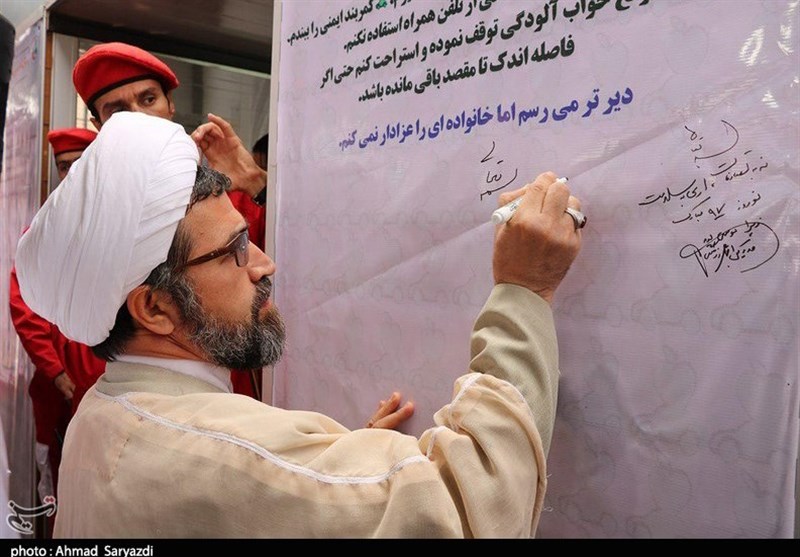 کمربند ایمنی را ببندم.
از تلفن همراه استفاده نکنم.
خواب آلودگی توقف نموده و استراحت کنم حتی اگر
فاصله اندک تا مقصد باقی مانده باشد.
دیر تر می رسم اما خانواده ای را عزادار نمی کنم.
بسمه تعالی
نوروز ۹۷ مبارک
تسنیم
photo : Ahmad Saryazdi